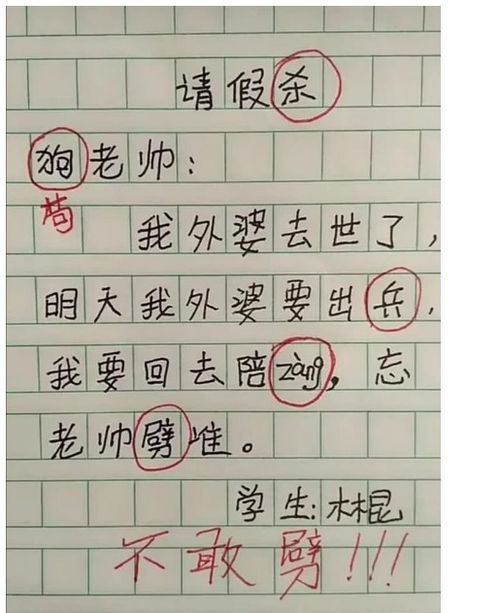 请假杀
狗老帅：
苟
我外婆去世了，
明天我外婆要出兵，
我要回去陪zàng，忘
老帅劈唯。
学生：木棍
不敢劈!!!